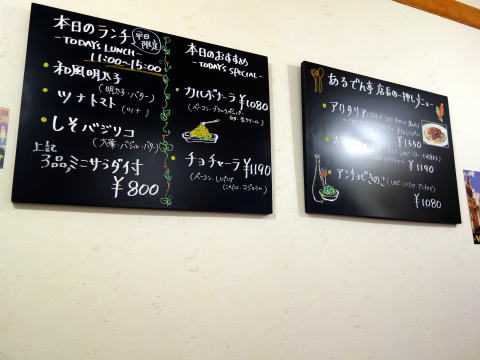 本日のランチ 平日限定
-TODAY'S LUNCH-
11:00~15:00
和風明太子
(明太子・バター)
ツナトマト
(ツナ)
しそバジリコ
(大葉・バジル・バター)
上記
3品ミニサラダ付
¥800
本日のおすすめ
-TODAY'S SPECIAL-
カルボナーラ ¥1080
チョチャーラ ¥1190
あるでん亭 店長の一押しメニュー
アリタリア
¥1350
¥1190
アンチョビきのこ
¥1080